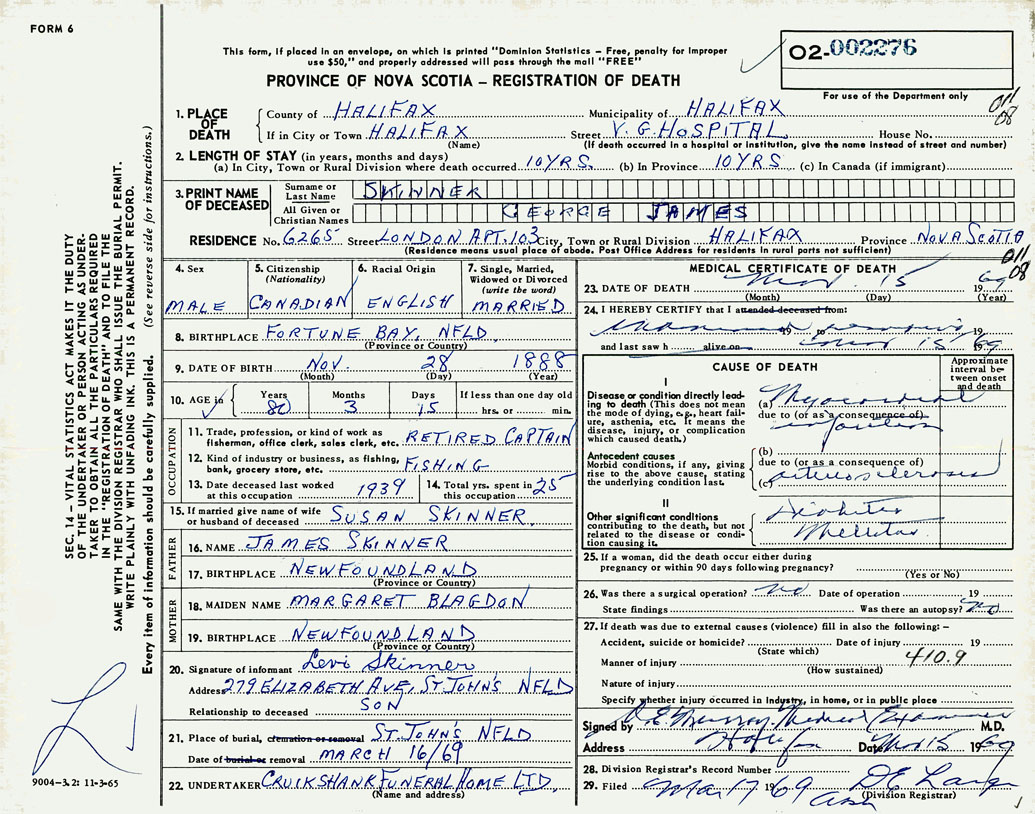 FORM 6
This form, if placed in an envelope, on which is printed "Dominion Statistics – Free, penalty for improper
use $50," and properly addressed will pass through the mail "FREE"
O2-002276
For use of the Department only
PROVINCE OF NOVA SCOTIA – REGISTRATION OF DEATH
011
08
1. PLACE OF DEATH County of HALIFAX Municipality of HALIFAX
If in City or Town HALIFAX Street V. G. HOSPITAL House No.
(Name) (If death occurred in a hospital or institution, give the name instead of street and number)
2. LENGTH OF STAY (in years, months and days)
(a) In City, Town or Rural Division where death occurred 10 YRS. (b) In Province 10 YRS. (c) In Canada (if immigrant)
3. PRINT NAME OF DECEASED Surname or Last Name SKINNER
All Given or Christian Names GEORGE JAMES
RESIDENCE No. 6265 Street LONDON APT. 103 City, Town or Rural Division HALIFAX Province NOVA SCOTIA
(Residence means usual place of abode. Post Office Address for residents in rural ports not sufficient)
011
08
4. Sex
MALE
5. Citizenship
(Nationality)
CANADIAN
6. Racial Origin
ENGLISH
7. Single, Married,
Widowed or Divorced
(write the word)
MARRIED
8. BIRTHPLACE FORTUNE BAY, NFLD.
(Province or Country)
9. DATE OF BIRTH Nov. 28 1888
(Month) (Day) (Year)
10. AGE in Years 80 Months 3 Days 15 If less than one day old
hrs. or min.
OCCUPATION
11. Trade, profession, or kind of work as
fisherman, office clerk, sales clerk, etc. RETIRED CAPTAIN
12. Kind of industry or business, as fishing,
bank, grocery store, etc. FISHING
13. Date deceased last worked
at this occupation 1939
14. Total yrs. spent in
this occupation 25
15. If married give name of wife
or husband of deceased SUSAN SKINNER
FATHER
16. NAME JAMES SKINNER
17. BIRTHPLACE NEWFOUNDLAND
(Province or Country)
MOTHER
18. MAIDEN NAME MARGARET BLAGDON
19. BIRTHPLACE NEWFOUNDLAND
(Province or Country)
20. Signature of informant Levi Skinner
Address 279 ELIZABETH AVE, ST JOHN'S NFLD
Relationship to deceased SON
21. Place of burial, cremation or removal ST. JOHN'S NFLD
Date of burial or removal MARCH 16/69
22. UNDERTAKER CRUIKSHANK FUNERAL HOME LTD.
(Name and address)
MEDICAL CERTIFICATE OF DEATH
23. DATE OF DEATH Mar. 15 1969
(Month) (Day) (Year)
24. I HEREBY CERTIFY that I attended deceased from:
19 to 19
and last saw h alive on Mar 15 1969
CAUSE OF DEATH
Approximate
interval be-
tween onset
and death
I
Disease or condition directly lead-
ing to death (This does not mean
the mode of dying, e.g., heart fail-
ure, asthenia, etc. It means the
disease, injury, or complication
which caused death.)
(a) Myocardial
due to (or as a consequence of)
infarction
Antecedent causes
Morbid conditions, if any, giving
rise to the above cause, stating
the underlying condition last.
(b)
due to (or as a consequence of)
(c) arteriosclerosis
II
Other significant conditions
contributing to the death, but not
related to the disease or condi-
tion causing it.
Diabetes
Mellitus
25. If a woman, did the death occur either during
pregnancy or within 90 days following pregnancy?
(Yes or No)
26. Was there a surgical operation? no Date of operation 19
State findings Was there an autopsy? no
27. If death was due to external causes (violence) fill in also the following: –
Accident, suicide or homicide? Date of injury 19
(State which)
Manner of injury 410.9
(How sustained)
Nature of injury
Specify whether injury occurred in Industry, in home, or in public place
Signed by D. E. Murray, Medical Examiner M.D.
Address Halifax Date Mar 15 1969
28. Division Registrar's Record Number
29. Filed Mar 17 1969
(Division Registrar)
SEC. 14 – VITAL STATISTICS ACT MAKES IT THE DUTY
OF THE UNDERTAKER OR PERSON ACTING AS UNDER-
TAKER TO OBTAIN ALL THE PARTICULARS REQUIRED
IN THE "REGISTRATION OF DEATH" AND TO FILE THE
SAME WITH THE DIVISION REGISTRAR WHO SHALL ISSUE THE BURIAL PERMIT.
WRITE PLAINLY WITH UNFADING INK. THIS IS A PERMANENT RECORD.
Every item of information should be carefully supplied. (See reverse side for instructions.)
9004-3.2: 11-3-65